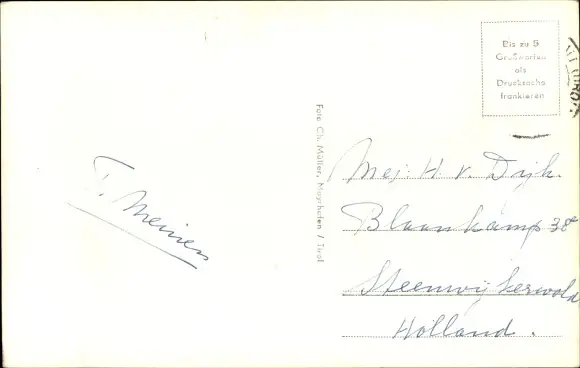 Bis zu 5
Grußworten
als
Drucksache
frankieren
Foto Ch. Müller, Mayrhofen / Tirol
T. Meinen
Mej. H. v. Dijk.
Blaankamp 38a
Steenwijkerwold
Holland.